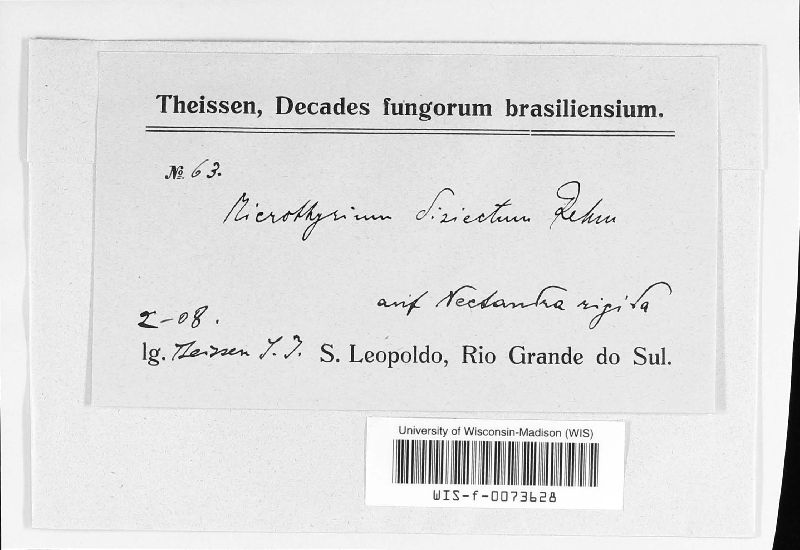 Theissen, Decades fungorum brasiliensium.
№ 63.
Microthyrium disiectum Rehm
auf Nectandra rigida
X-08.
lg. Theissen S. J. S. Leopoldo, Rio Grande do Sul.
University of Wisconsin-Madison (WIS)
WIS-f-0073628